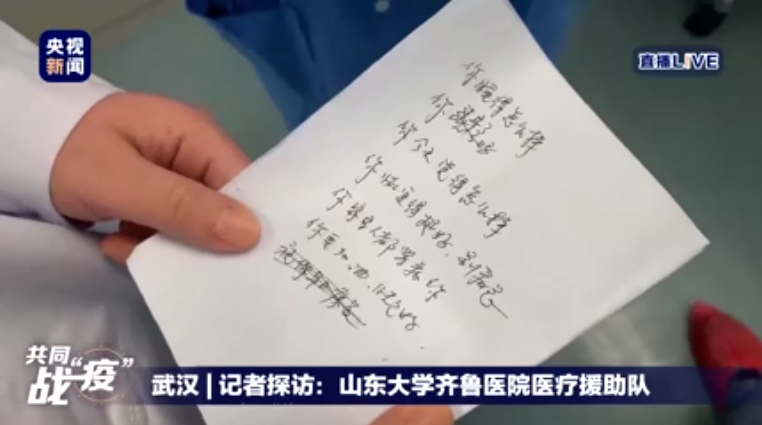 央视
新闻
直播LIVE
你睡得怎么样
你
你今天觉得怎么样
你恢复得挺好，别着急
你家里人都等着你
你要加油
共同
战“疫”
武汉 | 记者探访：山东大学齐鲁医院医疗援助队